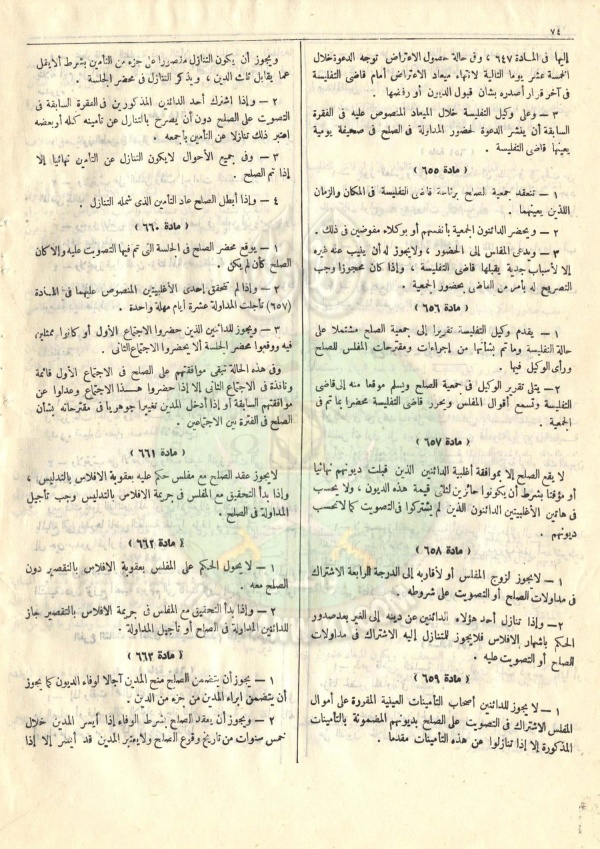 ٧٤
إليها فى المادة ٦٤٧ ، وفى حالة حصول الاعتراض توجه الدعوة خلال
الخمسة عشر يوما التالية لانتهاء ميعاد الاعتراض أمام قاضى التفليسة
فى آخر قرار أصدره بشأن قبول الديون أو رفضها .
٣ – وعلى وكيل التفليسة خلال الميعاد المنصوص عليه فى الفقرة
السابقة أن ينشر الدعوة لحضور المداولة فى الصلح فى صحيفة يومية
يعينها قاضى التفليسة .
( مادة ٦٥٥ )
١ – تنعقد جمعية الصلح برئاسة قاضى التفليسة فى المكان والزمان
اللذين يعينهما .
٢ – ويحضر الدائنون الجمعية بأنفسهم أو بوكلاء مفوضين فى ذلك .
٣ – ويدعى المفلس إلى الحضور ، ولا يجوز له أن ينيب عنه غيره
إلا لأسباب جدية يقبلها قاضى التفليسة ، وإذا كان محجوزا وجب
التصريح له بأمر من القاضى بحضور الجمعية .
( مادة ٦٥٦ )
١ – يقدم وكيل التفليسة تقريرا إلى جمعية الصلح مشتملا على
حالة التفليسة وما تم بشأنها من إجراءات ومقترحات المفلس للصلح
ورأى الوكيل فيها .
٢ – يتلى تقرير الوكيل فى جمعية الصلح ويسلم موقعا منه إلى قاضى
التفليسة وتسمع أقوال المفلس ويحرر قاضى التفليسة محضرا بما تم فى
الجمعية .
( مادة ٦٥٧ )
لا يقع الصلح إلا بموافقة أغلبية الدائنين الذين قبلت ديونهم نهائيا
أو مؤقتا بشرط أن يكونوا حائزين لثلثى قيمة هذه الديون ، ولا يحسب
فى هاتين الأغلبيتين الدائنون الذين لم يشتركوا فى التصويت كما لا تحسب
ديونهم .
( مادة ٦٥٨ )
١ – لا يجوز لزوج المفلس أو لأقاربه إلى الدرجة الرابعة الاشتراك
فى مداولات الصلح أو التصويت على شروطه .
٢ – وإذا تنازل أحد هؤلاء الدائنين عن دينه إلى الغير بعد صدور
الحكم باشهار الافلاس فلا يجوز للمتنازل إليه الاشتراك فى مداولات
الصلح أو التصويت عليه .
( مادة ٦٥٩ )
١ – لا يجوز للدائنين أصحاب التأمينات العينية المقررة على أموال
المفلس الاشتراك فى التصويت على الصلح بديونهم المضمونة بالتأمينات
المذكورة إلا إذا تنازلوا عن هذه التأمينات مقدما .
ويجوز أن يكون التنازل مقصورا على جزء من التأمين بشرط ألا يقل
عما يقابل ثلث الدين ، ويذكر التنازل فى محضر الجلسة .
٢ – وإذا اشترك أحد الدائنين المذكورين فى الفقرة السابقة فى
التصويت على الصلح دون أن يصرح بالتنازل عن تأمينه كله أو بعضه
اعتبر ذلك تنازلا عن التأمين بأجمعه .
٣ – وفى جميع الأحوال لا يكون التنازل عن التأمين نهائيا إلا
إذا تم الصلح .
٤ – وإذا أبطل الصلح عاد التأمين الذى شمله التنازل .
( مادة ٦٦٠ )
١ – يوقع محضر الصلح فى الجلسة التى تم فيها التصويت عليه وإلا كان
الصلح كأن لم يكن .
٢ – وإذا لم تتحقق إحدى الأغلبيتين المنصوص عليهما فى المادة
(٦٥٧) تأجلت المداولة عشرة أيام مهلة واحدة .
٣ – ويجوز للدائنين الذين حضروا الاجتماع الأول أو كانوا ممثلين
فيه ووقعوا محضر الجلسة ألا يحضروا الاجتماع الثانى .
وفى هذه الحالة تبقى موافقتهم على الصلح فى الاجتماع الأول قائمة
ونافذة فى الاجتماع الثانى إلا إذا حضروا هذا الاجتماع وعدلوا عن
موافقتهم السابقة أو إذا أدخل المدين تغييرا جوهريا فى مقترحاته بشأن
الصلح فى الفترة بين الاجتماعين .
( مادة ٦٦١ )
لا يجوز عقد الصلح مع مفلس حكم عليه بعقوبة الافلاس بالتدليس ،
وإذا بدأ التحقيق مع المفلس فى جريمة الافلاس بالتدليس وجب تأجيل
المداولة فى الصلح .
( مادة ٦٦٢ )
١ – لا يحول الحكم على المفلس بعقوبة الافلاس بالتقصير دون
الصلح معه .
٢ – وإذا بدأ التحقيق مع المفلس فى جريمة الافلاس بالتقصير جاز
للدائنين المداولة فى الصلح أو تأجيل المداولة .
( مادة ٦٦٣ )
١ – يجوز أن يتضمن الصلح منح المدين آجالا لوفاء الديون كما يجوز
أن يتضمن ابراء المدين من جزء من الدين .
٢ – ويجوز أن يعقد الصلح بشرط الوفاء إذا أيسر المدين خلال
خمس سنوات من تاريخ وقوع الصلح ولا يعتبر المدين قد أيسر إلا إذا